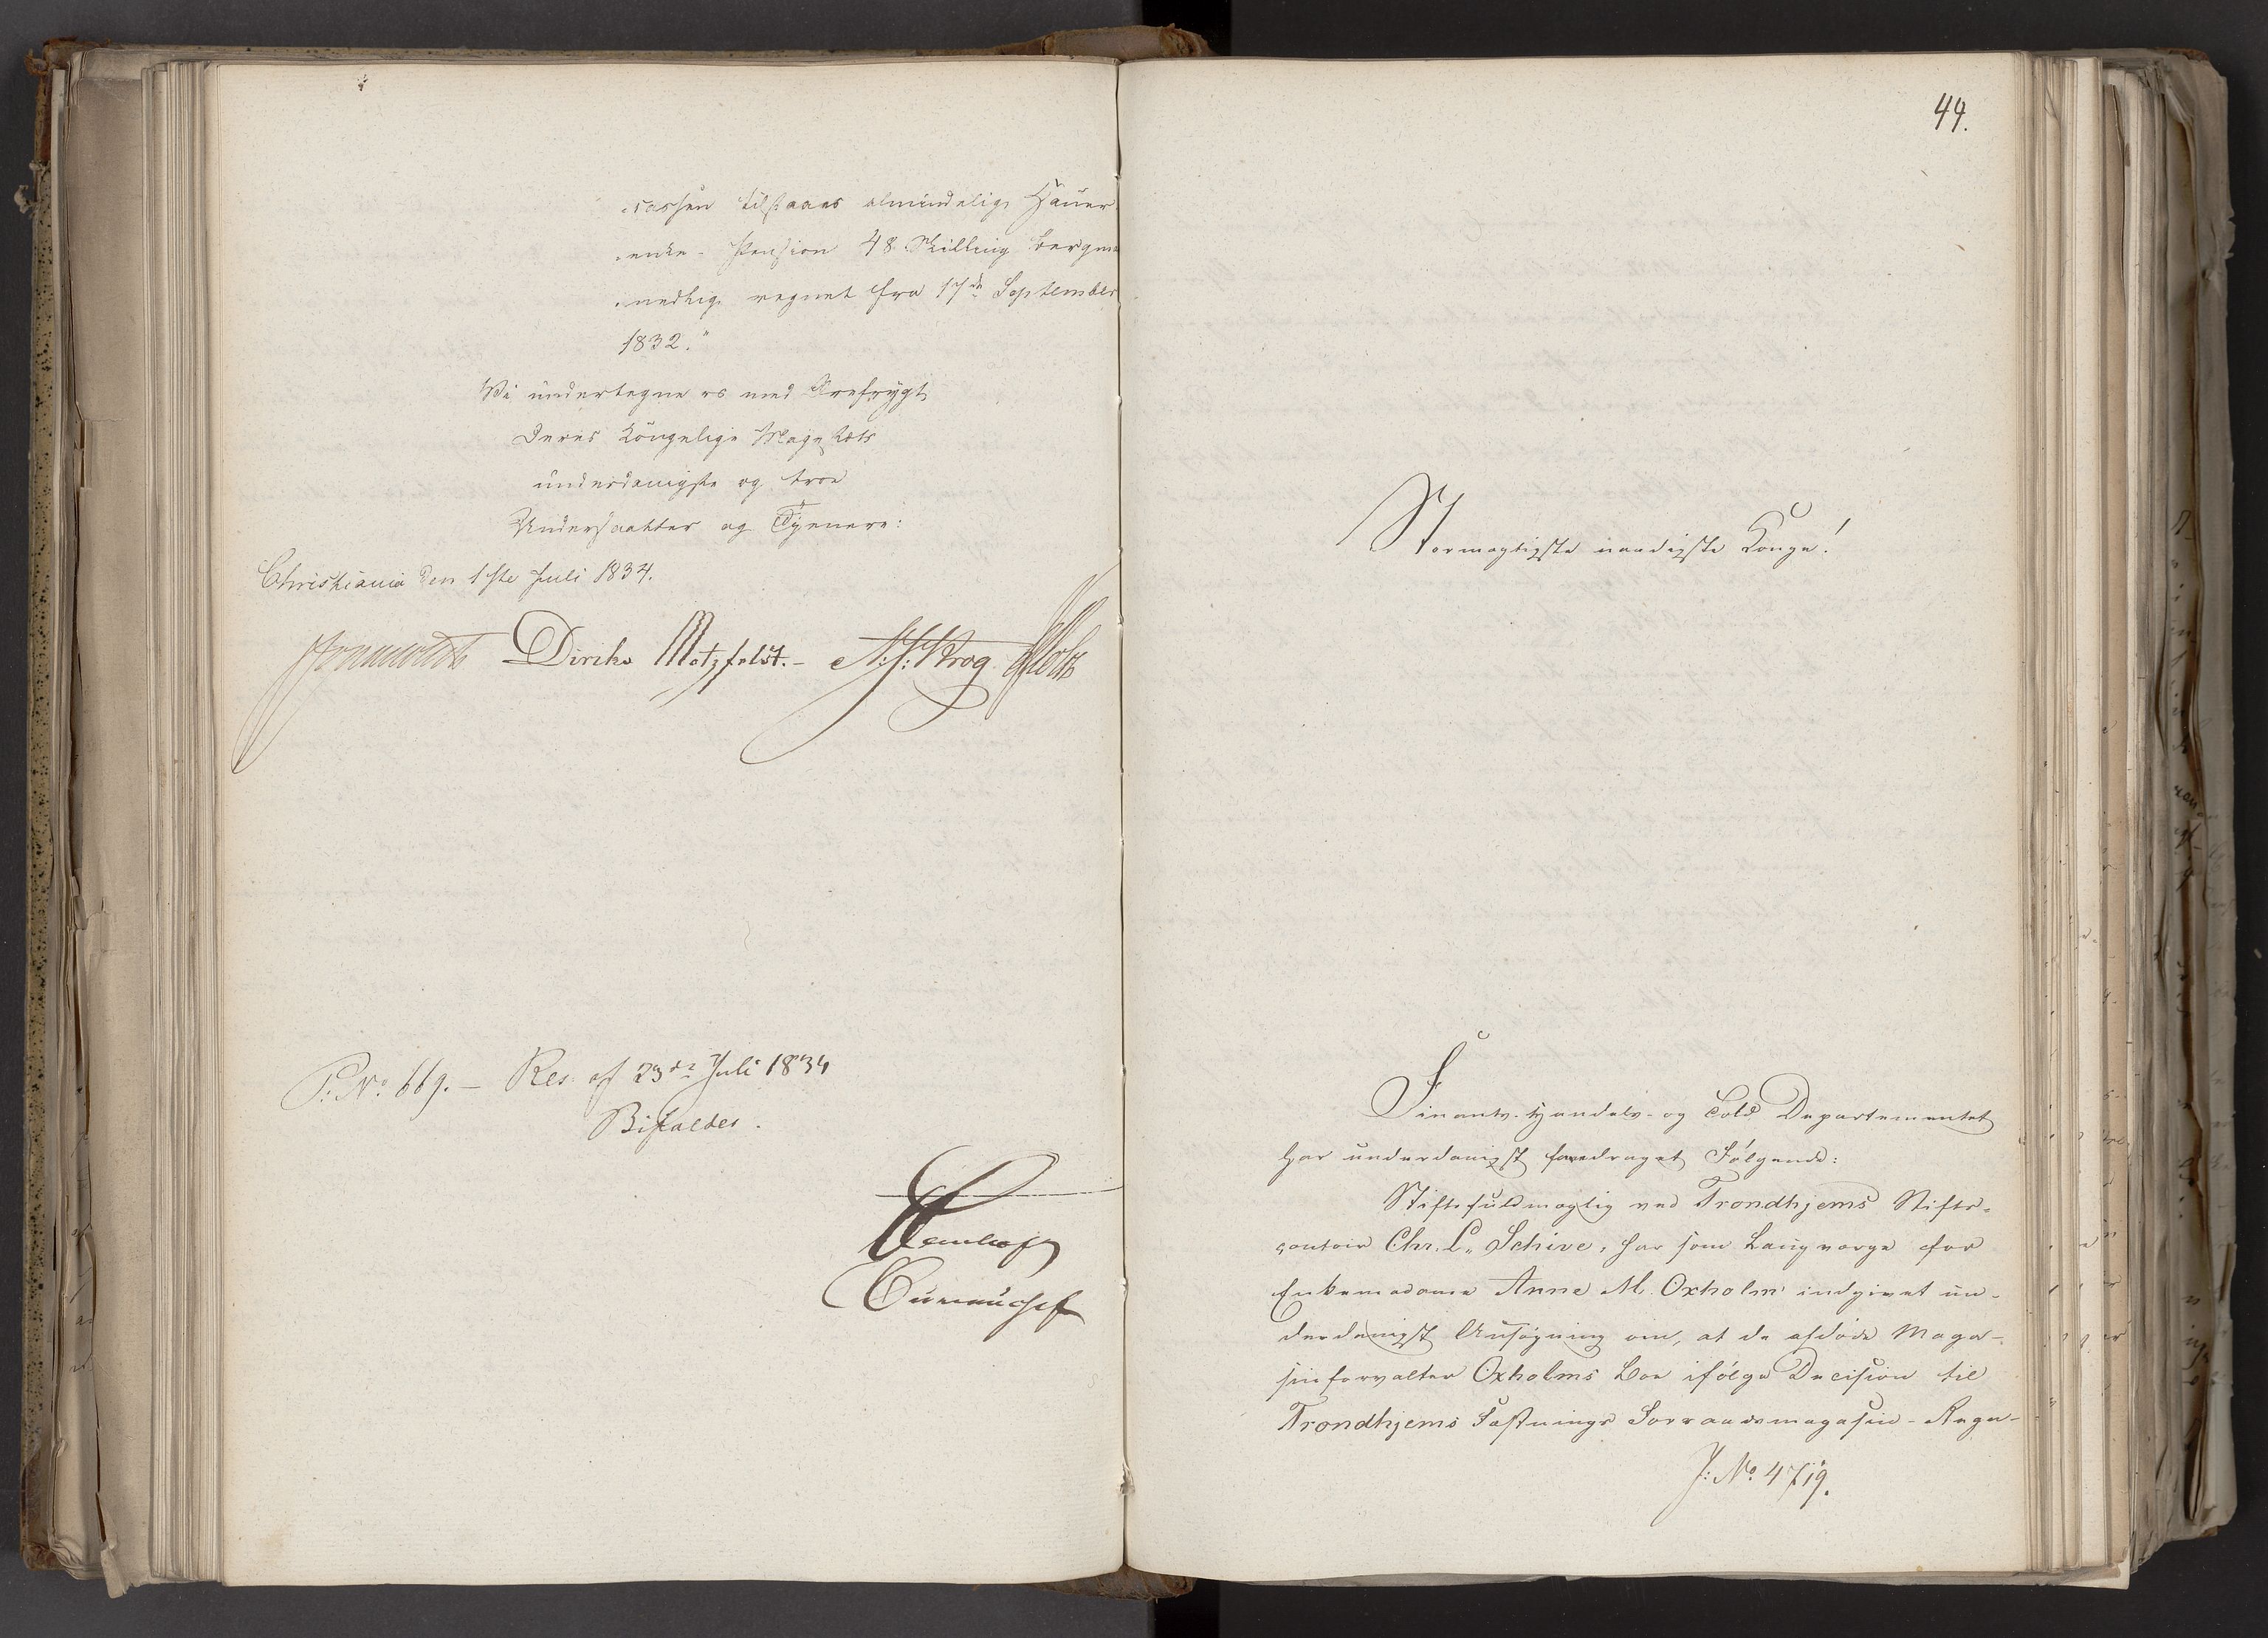 cassen tilstaaes almindelig Hauer-
enke-Pension 48 Skilling bergmaa-
nedlig regnet fra 17de September
1832."
Vi undertegne os med Ærefrygt
Deres Kongelige Majestæts
underdanigste og troe
Undersaatter og Tjenere:
Christiania den 1ste Juli 1834.
Diriks Motzfeldt.- N:J:Krog Holst
P: No 669. - Res. af 23de Juli 1834
Bifaldes.
44.
Stormægtigste naadigste Konge!
Finants- Handels- og Told Departementet
har underdanigst foredraget Følgende:
Stiftsfuldmægtig ved Trondhjems Stifts-
contoir Chr. L. Schive, har som Laugværge for
Enkemadame Anne M. Oxholm indgivet un-
derdanigst Ansøgning om, at de afdøde Maga-
sinforvalter Oxholms Boe ifølge Decision til
Trondhjems Fæstnings Forraadsmagasin-Regn-
J: No 4719.